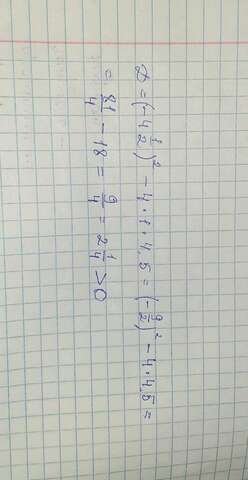 D = (-4 1/2)² - 4 · 1 · 4,5 = (-9/2)² - 4 · 4,5 =
= 81/4 - 18 = 9/4 = 2 1/4 > 0